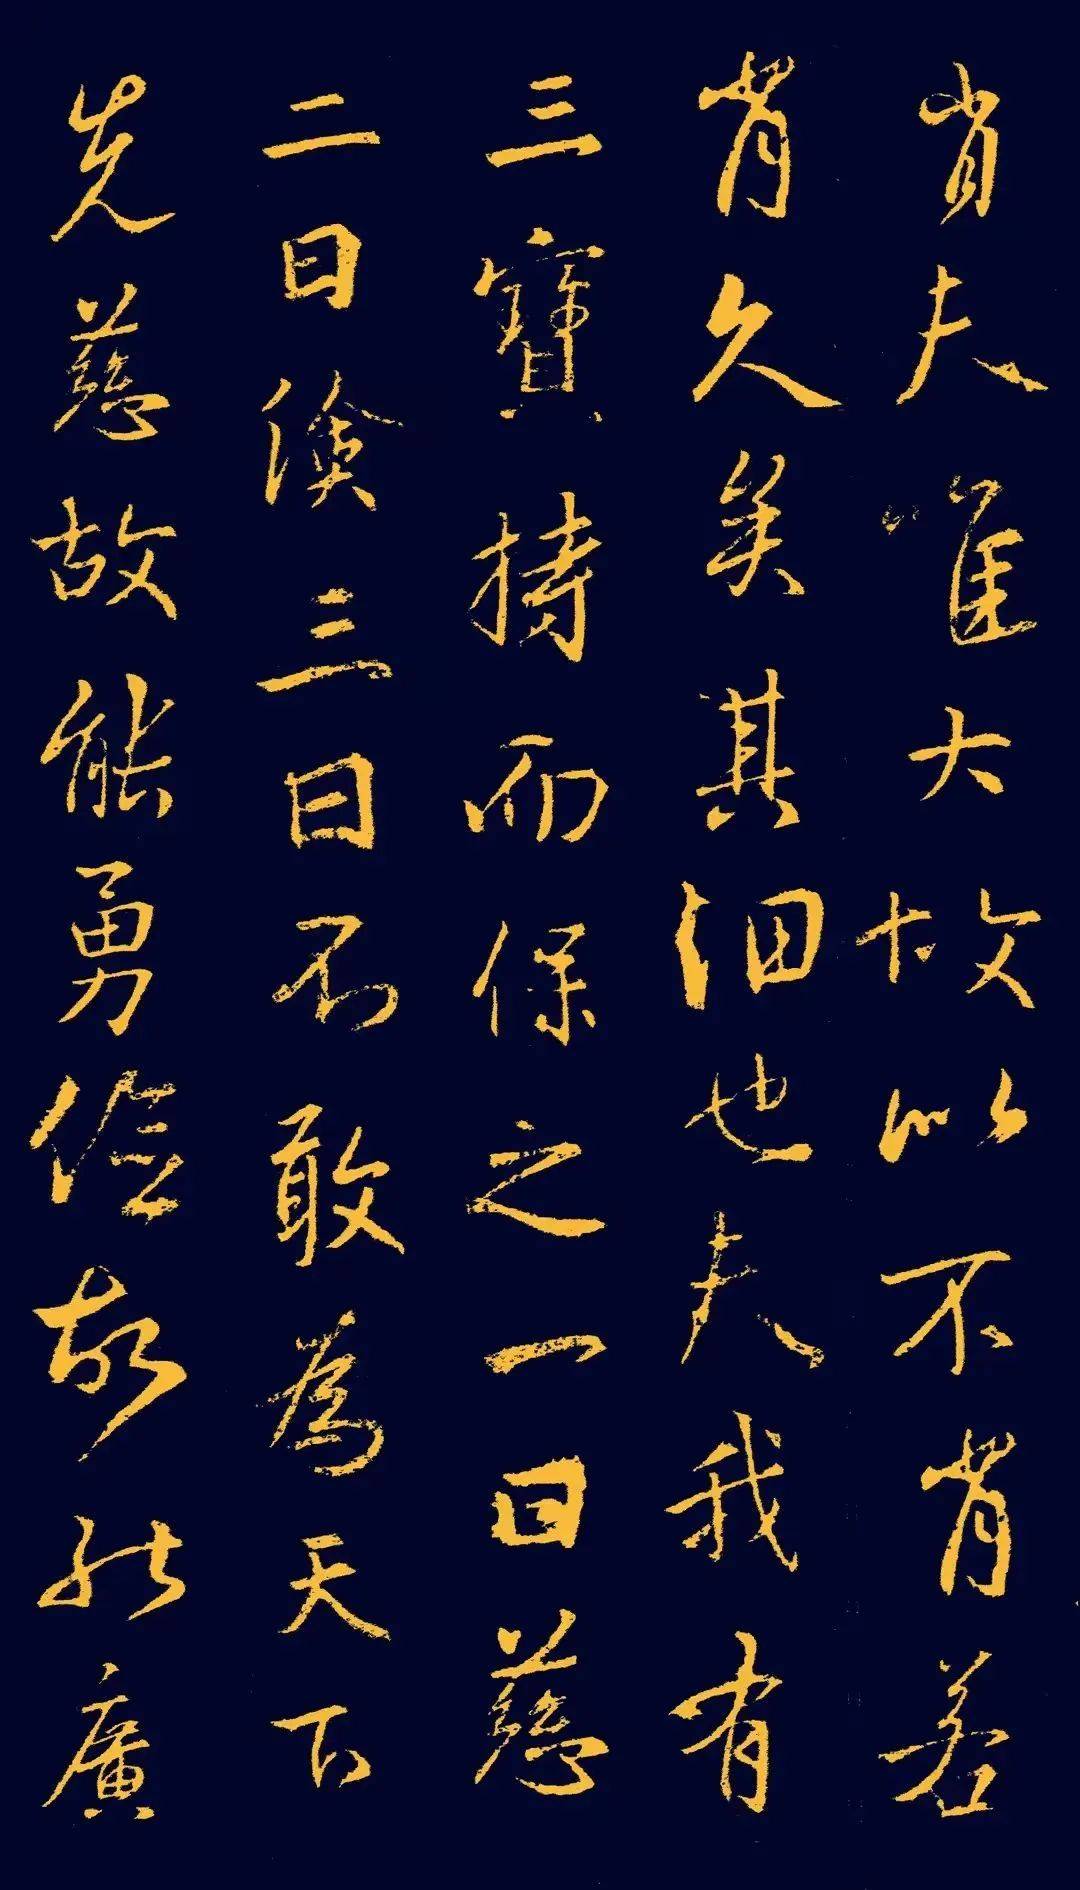 肖夫唯大故似不肖若
肖久矣其細也夫我有
三寶持而保之一曰慈
二曰儉三曰不敢為天下
先慈故能勇儉故能廣